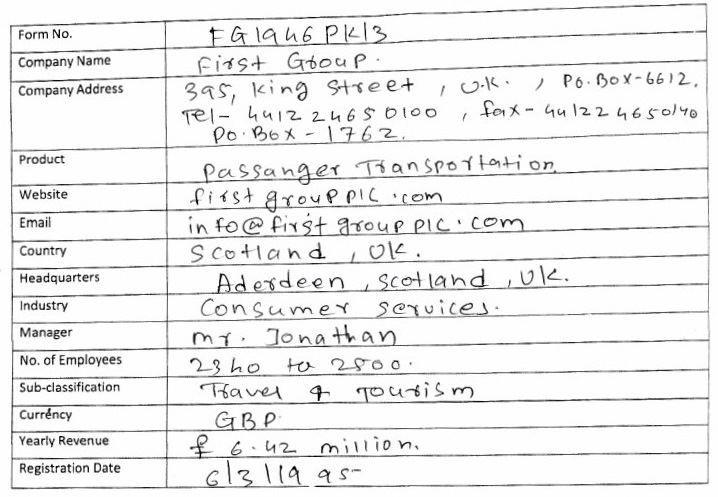 Form No. FG1946PK13
Company Name First Group.
Company Address 395, King Street, U.K., Po.Box-6612,
Tel- 44122 4650100, fax- 44122 4650140
Po.Box-1762.
Product Passanger Transportation.
Website first groupplc.com
Email info@first groupplc.com
Country Scotland, UK.
Headquarters Aderdeen, Scotland, UK.
Industry Consumer Services.
Manager Mr. Jonathan
No. of Employees 2340 to 2500.
Sub-classification Travel & Tourism
Currency GBP.
Yearly Revenue £ 6.42 million.
Registration Date 6/3/1995